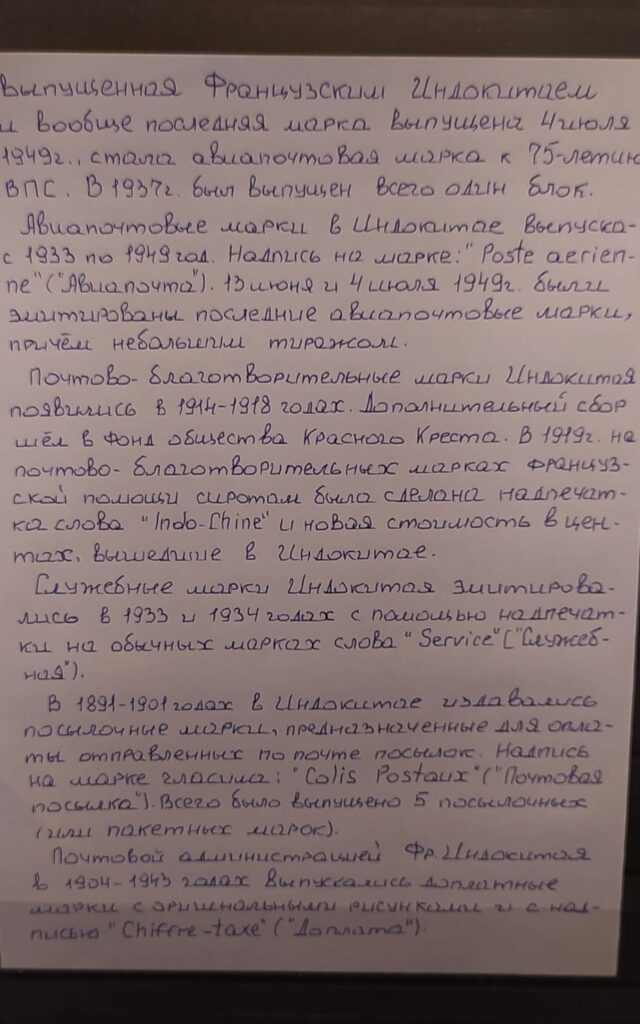 выпущенная Французским Индокитаем
и вообще последняя марка выпущена 4 июля
1949г., стала авиапочтовая марка к 75-летию
ВПС. В 1937г. был выпущен всего один блок.
Авиапочтовые марки в Индокитае выпуска-
с 1933 по 1949 год. Надпись на марке: "Poste aerien-
ne" ("Авиапочта"). 13 июня и 4 июля 1949г. были
эмитированы последние авиапочтовые марки,
причём небольшим тиражом.
Почтово-благотворительные марки Индокитая
появились в 1914-1918 годах. Дополнительный сбор
шёл в Фонд общества Красного Креста. В 1919г. на
почтово-благотворительных марках француз-
ской помощи сиротам была сделана надпечат-
ка слова "Indo-Chine" и новая стоимость в цен-
тах, вышедшие в Индокитае.
Служебные марки Индокитая эмитирова-
лись в 1933 и 1934 годах с помощью надпечат-
ки на обычных марках слова "Service" ("Служеб-
ная").
В 1891-1901 годах в Индокитае издавались
посылочные марки, предназначенные для опла-
ты отправленных по почте посылок. Надпись
на марке гласила: "Colis Postaux" ("Почтовая
посылка"). Всего было выпущено 5 посылочных
(или пакетных марок).
Почтовой администрацией Фр. Индокитая
в 1904-1943 годах выпускались доплатные
марки с оригинальными рисунками и с над-
писью "Chiffre-taxe" ("Доплата").